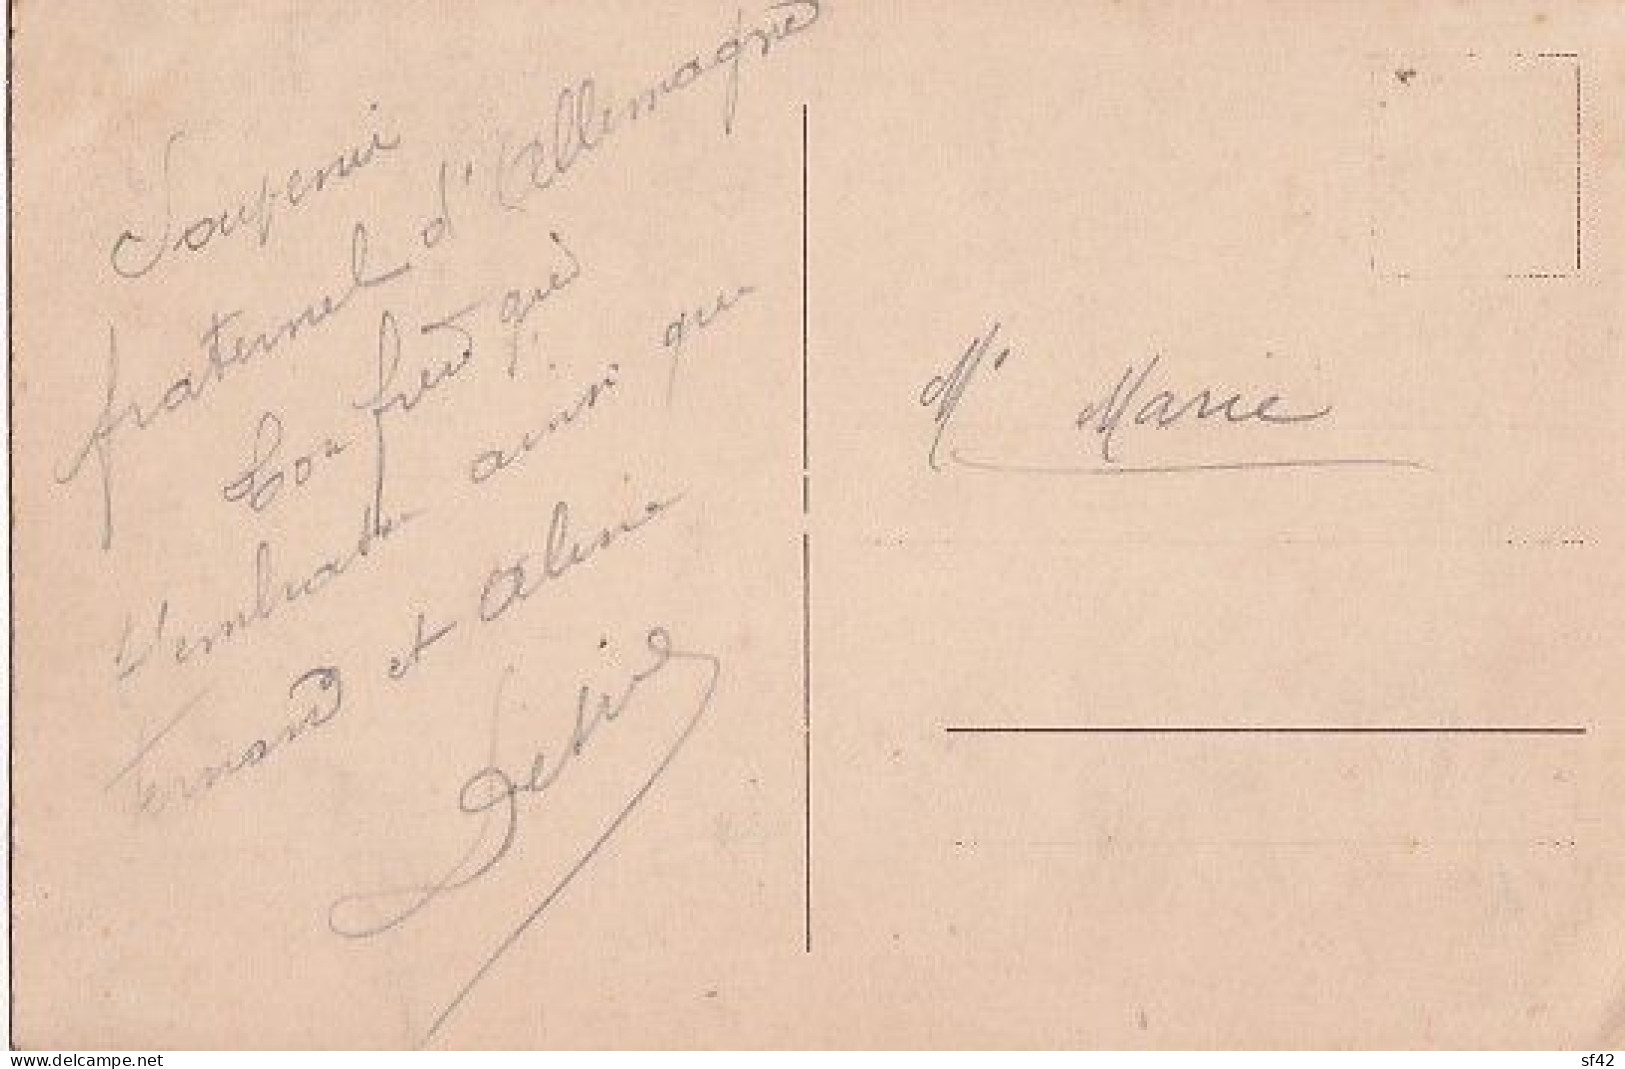 Souvenir
fraternel d'Allemagne
Ton frère qui
t'embrasse ainsi que
Fernand et Aline
Mr Marie
delcampe.net
sf42